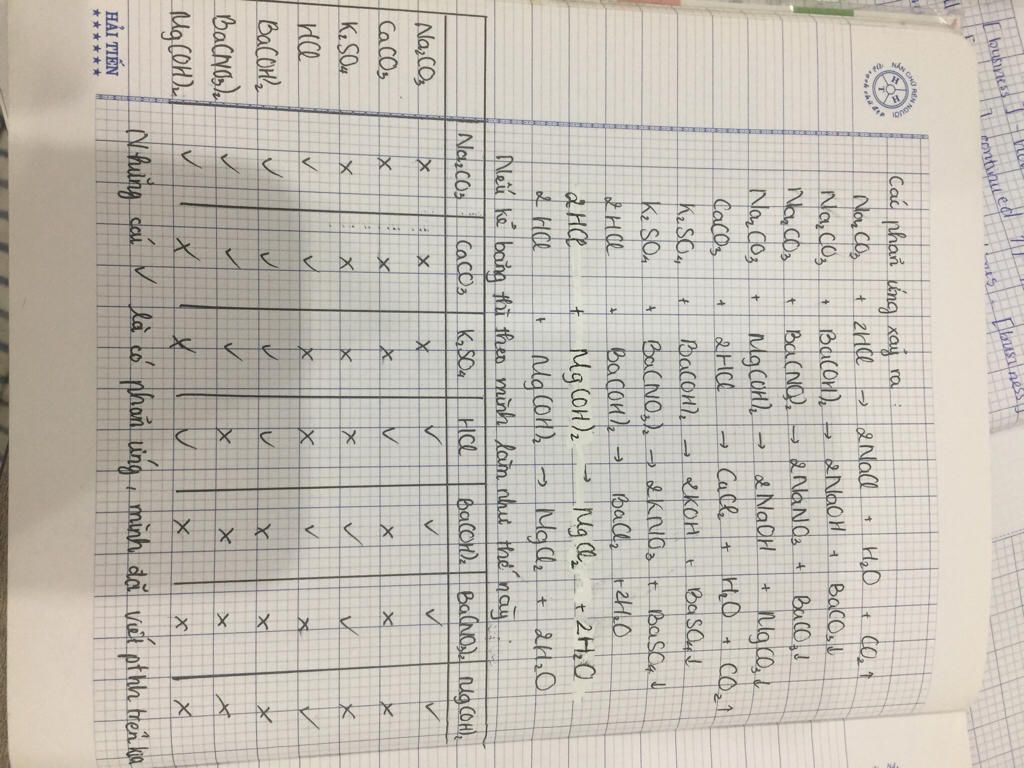 NẮN CHỮ RÈN NGƯỜI
Các phản ứng xảy ra :
Na₂CO₃ + 2HCl → 2NaCl + H₂O + CO₂↑
Na₂CO₃ + Ba(OH)₂ → 2NaOH + BaCO₃↓
Na₂CO₃ + Ba(NO₃)₂ → 2NaNO₃ + BaCO₃↓
Na₂CO₃ + Mg(OH)₂ → 2NaOH + MgCO₃↓
CaCO₃ + 2HCl → CaCl₂ + H₂O + CO₂↑
K₂SO₄ + Ba(OH)₂ → 2KOH + BaSO₄↓
K₂SO₄ + Ba(NO₃)₂ → 2KNO₃ + BaSO₄↓
2HCl + Ba(OH)₂ → BaCl₂ + 2H₂O
2HCl + Mg(OH)₂ → MgCl₂ + 2H₂O
2HCl + Mg(OH)₂ → MgCl₂ + 2H₂O
Nếu kẻ bảng thì theo mình làm như thế này :
Na₂CO₃ CaCO₃ K₂SO₄ HCl Ba(OH)₂ Ba(NO₃)₂ Mg(OH)₂
Na₂CO₃ × × × ✓ ✓ ✓ ✓
CaCO₃ × × × ✓ × × ×
K₂SO₄ × × × × ✓ ✓ ×
HCl ✓ ✓ × × ✓ × ✓
Ba(OH)₂ ✓ ✓ ✓ ✓ × × ×
Ba(NO₃)₂ ✓ ✓ ✓ × × × ×
Mg(OH)₂ ✓ × × ✓ × × ×
Những cái ✓ là có phản ứng, mình đã viết pthh trên kia
HẢI TIẾN